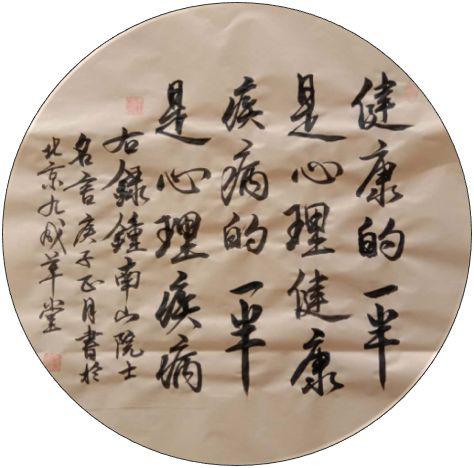 健康的一半
是心理健康
疾病的一半
是心理疾病
右録鍾南山院士
名言庚子正月書於
北京九成草堂